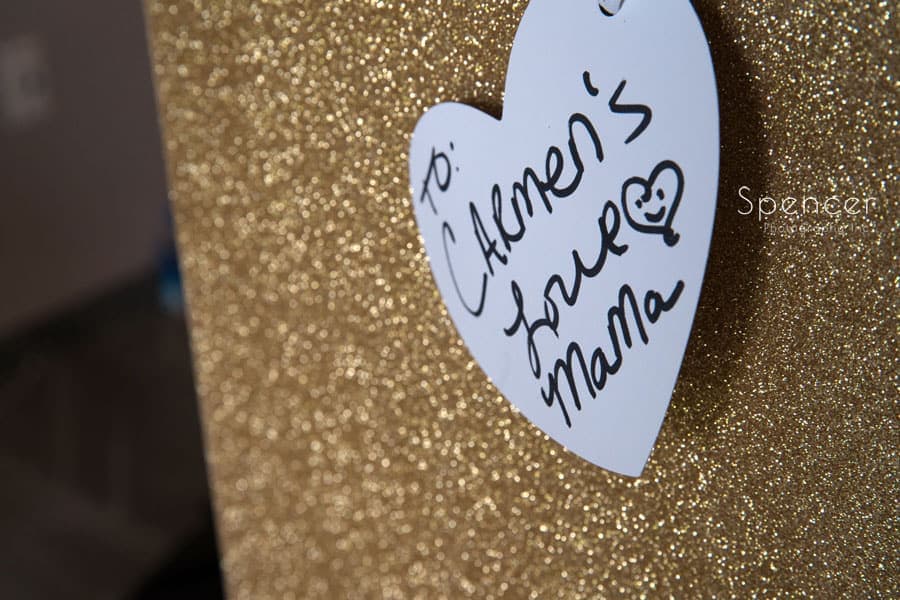 To:
CARmen's
Love
MaMa
Spencer
Photography Inc.